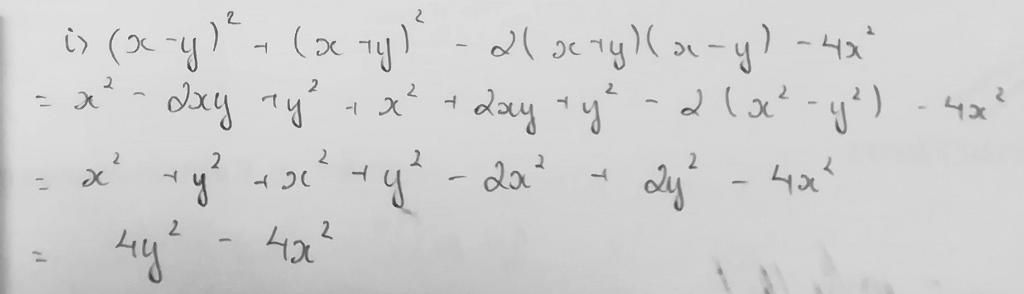 i) (x - y)² + (x + y)² - 2(x + y)(x - y) - 4x²
= x² - 2xy + y² + x² + 2xy + y² - 2(x² - y²) - 4x²
= x² + y² + x² + y² - 2x² + 2y² - 4x²
= 4y² - 4x²